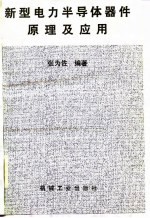 新型电力半导体器件
原理及应用
张为佐 编著
机械工业出版社